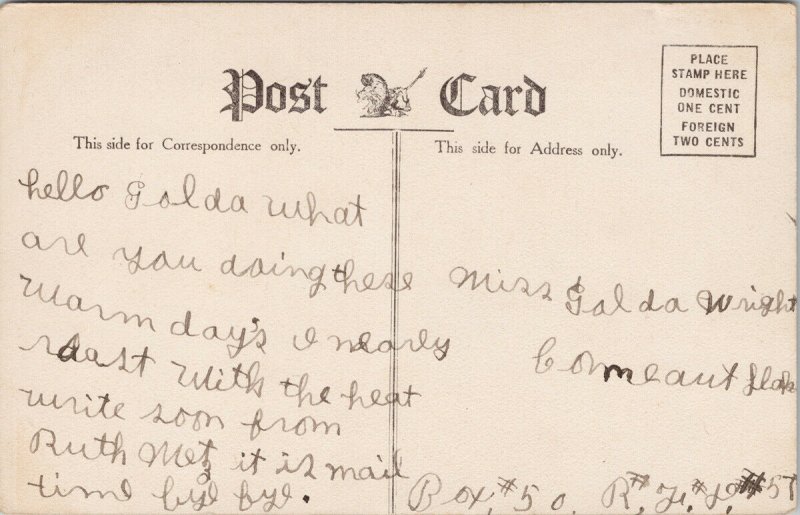 Post Card
PLACE
STAMP HERE
DOMESTIC
ONE CENT
FOREIGN
TWO CENTS
This side for Correspondence only.
This side for Address only.
hello Golda What
are you doing these
Warm day's I nearly
roast With the heat
write soon from
Ruth Metz it is mail
time bye bye.
Miss Golda Wright
Conneaut
Box, #50, R. #57